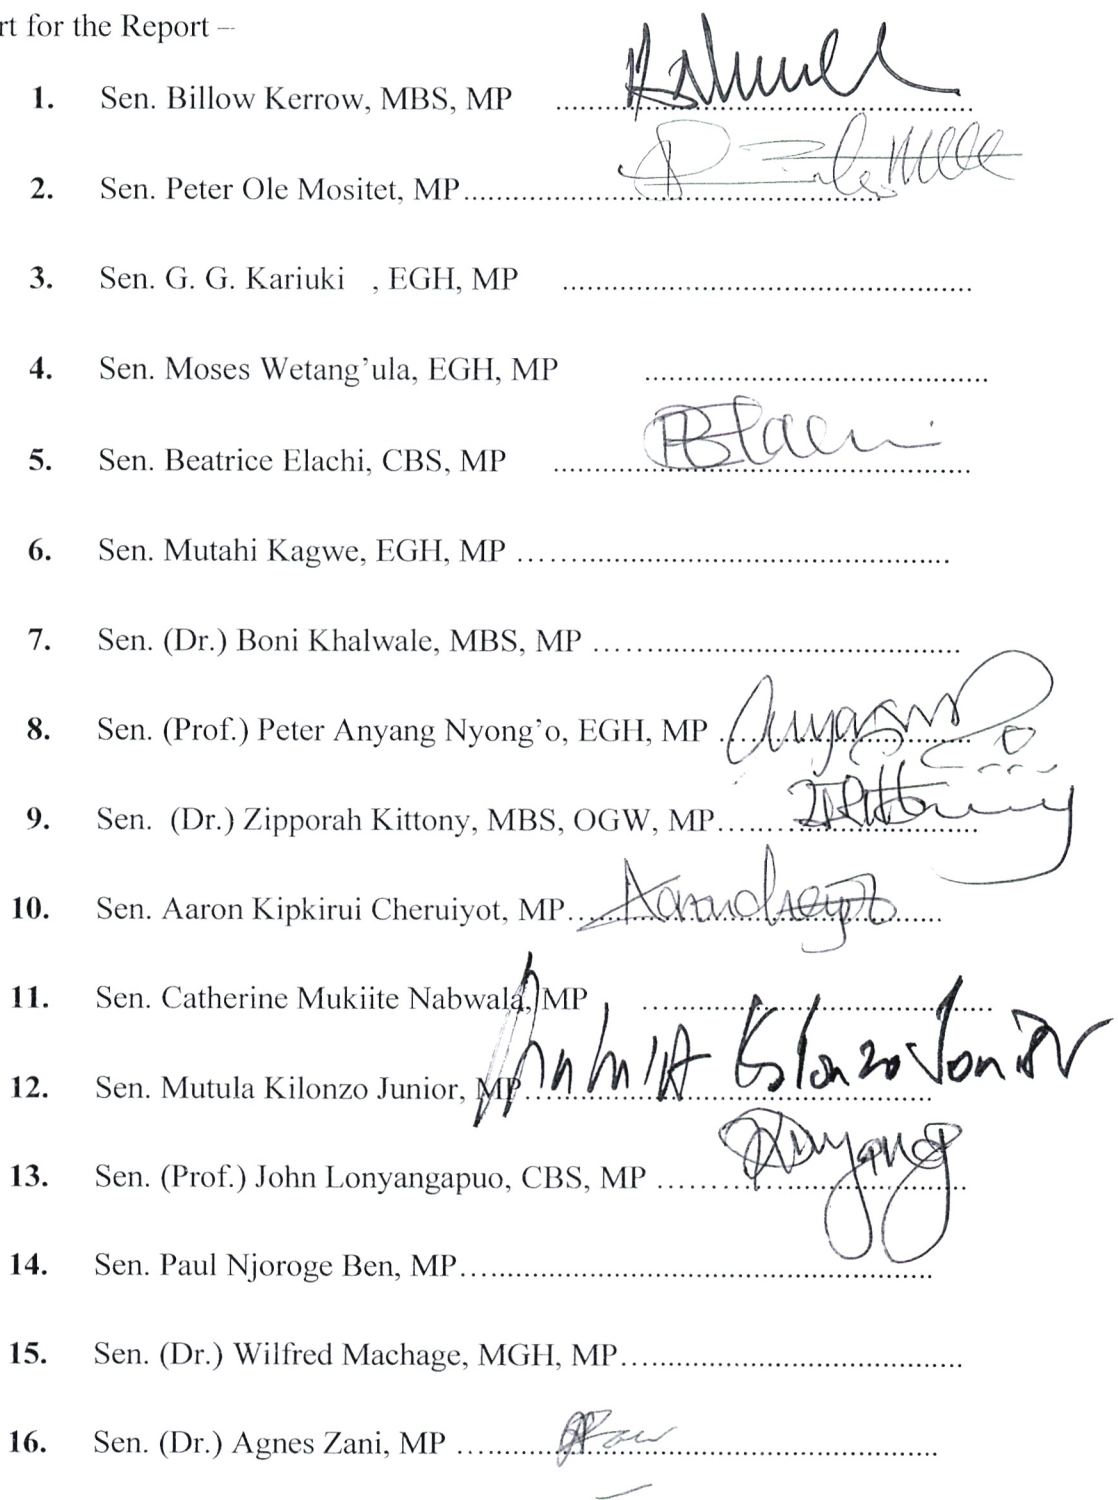 rt for the Report –
1. Sen. Billow Kerrow, MBS, MP ....................
2. Sen. Peter Ole Mositet, MP....................
3. Sen. G. G. Kariuki , EGH, MP ....................
4. Sen. Moses Wetang’ula, EGH, MP ....................
5. Sen. Beatrice Elachi, CBS, MP ....................
6. Sen. Mutahi Kagwe, EGH, MP ....................
7. Sen. (Dr.) Boni Khalwale, MBS, MP ....................
8. Sen. (Prof.) Peter Anyang Nyong’o, EGH, MP ....................
9. Sen. (Dr.) Zipporah Kittony, MBS, OGW, MP....................
10. Sen. Aaron Kipkirui Cheruiyot, MP....................
11. Sen. Catherine Mukiite Nabwala, MP ....................
12. Sen. Mutula Kilonzo Junior, MP.................... Kilonzo Junior
13. Sen. (Prof.) John Lonyangapuo, CBS, MP ....................
14. Sen. Paul Njoroge Ben, MP....................
15. Sen. (Dr.) Wilfred Machage, MGH, MP....................
16. Sen. (Dr.) Agnes Zani, MP ....................